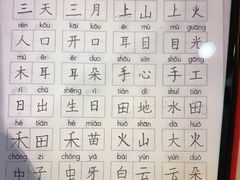 三天 三月 上山 上火
rén kǒu kāi kǒu ěr mù mù guāng
人口 开口 耳目 目光
mù ěr ěr duo shǒu xīn shǒu gōng
木耳 耳朵 手心 手工
rì chū shēng rì tián dì shuǐ tián
日出 生日 田地 水田
hé tián hé miáo huǒ shān dà huǒ
禾田 禾苗 火山 大火
chóng zǐ bái yún yún duǒ
虫子 白云 云